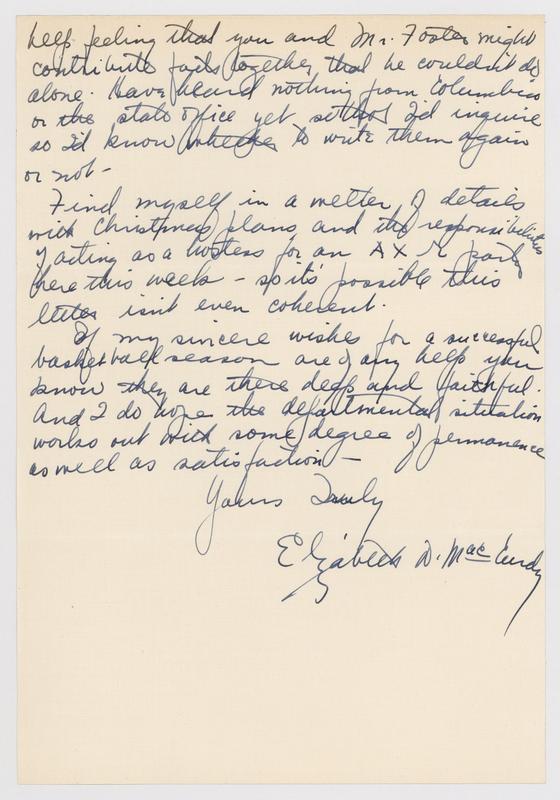 help feeling that you and Mr. Foster might
contribute facts together that he couldn't do
alone. Have heard nothing from Columbia
or the state office yet so I'd inquire
so I'd know whether to write them again
or not -
Find myself in a welter of details
with Christmas plans and the responsibilities
of acting as a hostess for an A X Ω party
here this week - so it's possible this
letter isn't even coherent.
If my sincere wishes for a successful
basketball season are of any help you
know they are there deep and faithful.
And I do hope the departmental situation
works out with some degree of permanence
as well as satisfaction -
Yours Truly
Elizabeth D. MacCurdy